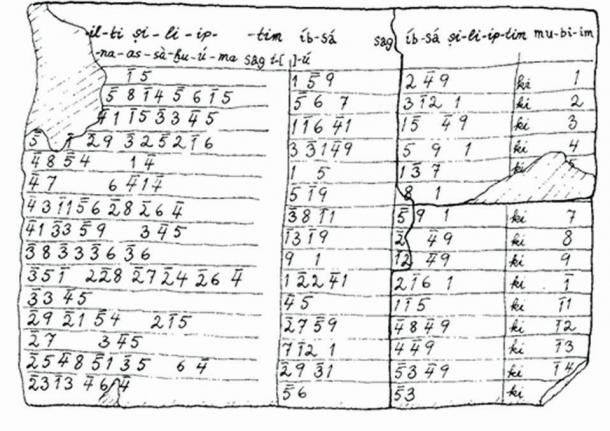 il-ti ṣi-li-ip- -tim íb-sá íb-sá ṣi-li-ip-tim mu-bi-im
-na-as-sà-ḫu-ú-ma sag i-[ ]-ú sag
1̄5 1 5̄9 2 4̄9 ki 1
5̄ 8 1̄4 5̄ 6 1̄5 5̄6 7 3 1̄2 1 ki 2
4̄1 1̄5 3̄3 4̄5 1 1̄6 4̄1 1̄5 4̄9 ki 3
5̄ 1̄ 2̄9 3̄2 5̄2 1̄6 3 3̄1 4̄9 5 9 1 ki 4
4̄8 5̄4 1 4̄ 1 5 1 3̄7 ki
4̄7 6 4̄1 4̄ 5 1̄9 8 1
4̄3 1̄1 5̄6 2̄8 2̄6 4̄ 3̄8 1̄1 5̄9 1 ki 7
4̄1 3̄3 5̄9 3 4̄5 1̄3 1̄9 2̄ 4̄9 ki 8
3̄8 3̄3 3̄6 3̄6 9 1 1̄2 4̄9 ki 9
3̄5 1̄ 2 2̄8 2̄7 2̄4 2̄6 4̄ 1 2̄2 4̄1 2 1̄6 1 ki 1̄
3̄3 4̄5 4̄5 1 1̄5 ki 1̄1
2̄9 2̄1 5̄4 2 1̄5 2̄7 5̄9 4̄8 4̄9 ki 1̄2
2̄7 3 4̄5 7 1̄2 1 4 4̄9 ki 1̄3
2̄5 4̄8 5̄1 3̄5 6 4̄ 2̄9 3̄1 5̄3 4̄9 ki 1̄4
2̄3 1̄3 4̄6 4̄ 5̄6 5̄3 ki